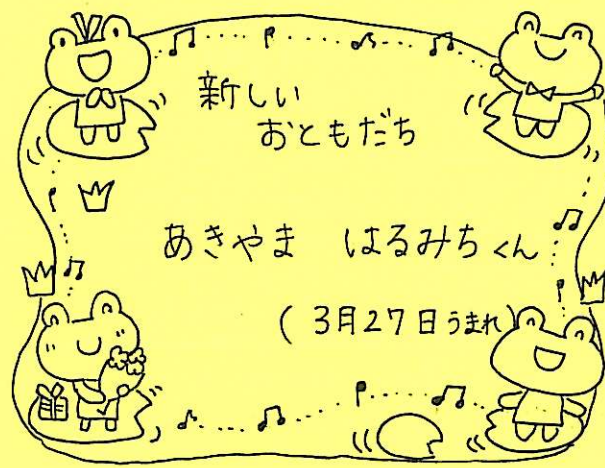 新しい
おともだち
あきやま　はるみちくん
(3月27日うまれ)